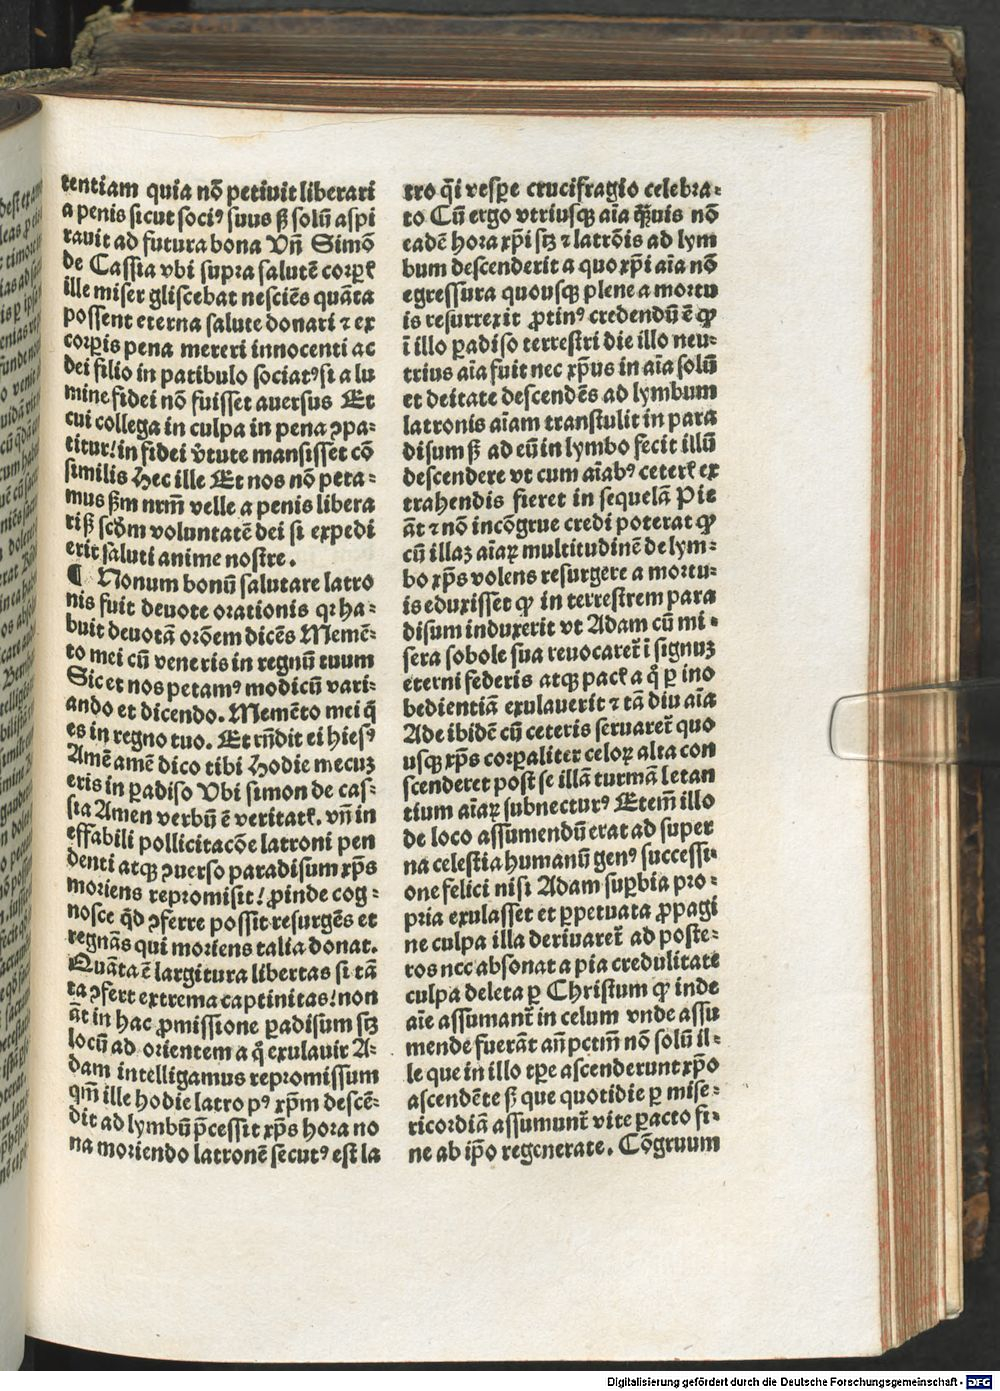 tentiam quia nõ petiuit liberari
a penis sicut sociꝰ suus sꝫ solũ aspi
rauit ad futura bona Vñ Simõ
de Cassia vbi supra salutẽ corꝑꝭ
ille miser gliscebat nesciẽs quãta
possent eterna salute donari ⁊ ex
corꝑis pena mereri innocenti ac
dei filio in patibulo sociatꝰ si a lu
mine fidei nõ fuisset auersus Et
cui collega in culpa in pena ꝯpa⸗
titur! in fidei v̾tute mansisset cõ
similis Hec ille Et nos nõ peta⸗
mus ßm nr̃m velle a penis libera
ri sꝫ scðm voluntatẽ dei si expedi
erit saluti anime nostre.
¶ Nonum bonũ salutare latro
nis fuit deuote orationis qꝛ ha⸗
buit deuotã orõem dicẽs Memẽ⸗
to mei cũ veneris in regnũ tuum
Sic et nos petamꝰ modicũ vari⸗
ando et dicendo. Memẽto mei q̃
es in regno tuo. Et rñdit ei hiesꝰ
Amẽ amẽ dico tibi Hodie mecuꝫ
eris in ꝑadiso Vbi simon de cas⸗
sia Amen verbũ ẽ veritatꝭ. vñ in
effabili pollicitacõe latroni pen
denti atqꝫ ꝯuerso paradisum xp̃s
moriens repromisit! ꝓinde cog⸗
nosce qd̾ ꝯferre possit resurgẽs et
regnãs qui moriens talia donat.
Quãta ẽ largitura libertas si tã
ta ꝯfert extrema captiuitas! non
ãt in hac ꝓmissione ꝑadisum sꝫ
locũ ad orientem a q̊ exulauit A⸗
dam intelligamus repromissum
qm̃ ille hodie latro pꝰ xp̃m descẽ⸗
dit ad lymbũ p̃cessit xp̃s hora no
na moriendo latronẽ secutꝰ est la
tro q̊i vesꝑe crucifragio celebra⸗
to Cũ ergo vtriusqꝫ aĩa qᷓuis nõ
eadẽ hora xp̃i sꝫ ⁊ latrõis ad lym
bum descenderit a quo xp̃i aĩa nõ
egressura quousqꝫ plene a mortu
is resurrexit ꝓtinꝰ credendũ ẽ ꝙ
ĩ illo ꝑadiso terrestri die illo neu⸗
trius aĩa fuit nec xp̃us in aĩa solũ
et deitate descendẽs ad lymbum
latronis aĩam transtulit in para
disum sꝫ ad eũ in lymbo fecit illũ
descendere vt cum aĩabꝰ ceterꝭ ex
trahendis fieret in sequelã Pie
ãt ⁊ nõ incõgrue credi poterat ꝙ
cũ illaꝫ aĩaꝝ multitudinẽ de lym⸗
bo xp̃s volens resurgere a mortu⸗
is eduxisset ꝙ in terrestrem para
disum induxerit vt Adam cũ mi⸗
sera sobole sua reuocaret̃ ĩ signuꝫ
eterni federis atqꝫ pacꝭ a q̊ ꝑ ino
bedientiã exulauerit ⁊ tã diu aĩa
Ade ibidẽ cũ ceteris seruaret̃ quo
usqꝫ xp̃s corꝑaliter celoꝝ alta con
scenderet post se illã turmã letan
tium aĩaꝝ subnecturꝰ Etem̃ illo
de loco assumendũ erat ad super
na celestia humanũ genꝰ successi⸗
one felici nisi Adam suꝑbia pro⸗
pria exulasset et ꝑpetuata ꝓpagi
ne culpa illa deriuaret̃ ad poste⸗
ros nec absonat a pia credulitate
culpa deleta ꝑ Christum ꝙ inde
aĩe assumant̃ in celum vnde assu
mende fuerãt añ pctm̃ nõ solũ il⸗
le que in illo tꝑe ascenderunt xp̃o
ascendẽte sꝫ que quotidie ꝑ mise⸗
ricordiã assumunt̃ vite ꝑacto fi⸗
ne ab ip̃o regenerate. Cõgruum
Digitalisierung gefördert durch die Deutsche Forschungsgemeinschaft - DFG